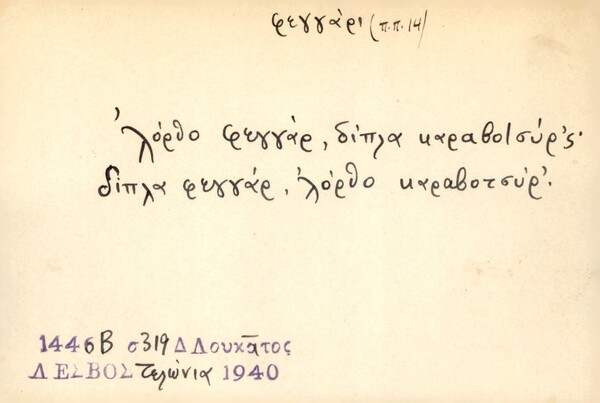 φεγγάρι (π.π. 14)
Ἀλόρθο φεγγάρ, δίπλα καραβοτσύρ'ς·
δίπλα φεγγάρ, ἀλόρθο καραβοτσύρ'.
1446 Β σ 319 Δ Λουκᾶτος
ΛΕΣΒΟΣ Τελώνια 1940